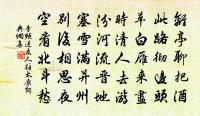 離亭聊把酒
此路徹邊頭
草白雁來盡
時清人去游
汾河流晉地
塞雪滿并州
別後相思夜
空看北斗愁
李頻送友人往太原詩